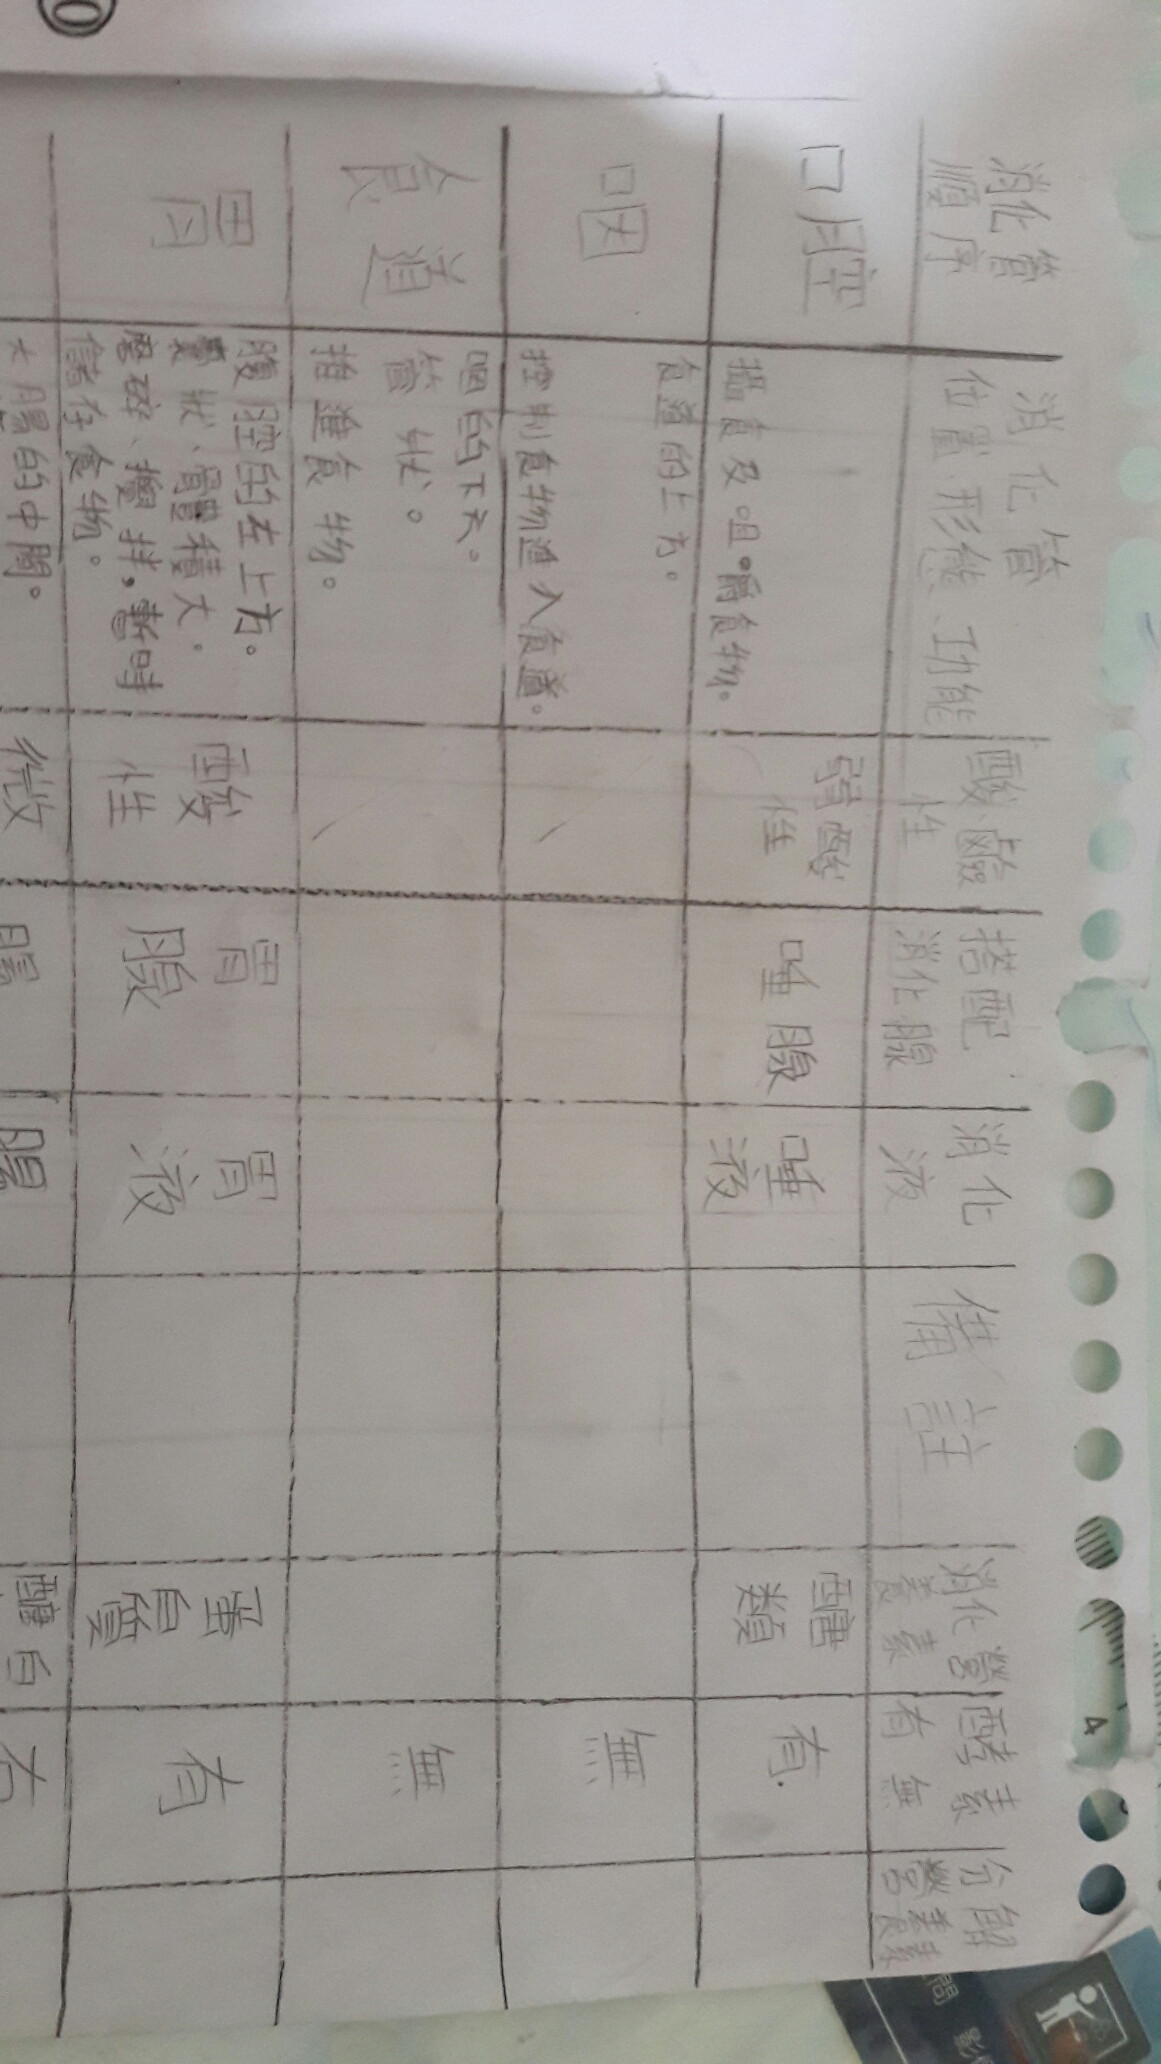 消化管
順序
消化管
位置、形態、功能
酸鹼
性
搭配
消化腺
消化
液
備註
消化營
養素
酵素
有無
分解
營養素
口腔
攝食及咀嚼食物。
弱酸
性
唾腺
唾
液
醣
類
有
咽
食道的上方。
控制食物進入食道。
無
食道
咽的下方。
管狀。
推進食物。
無
胃
腹腔的左上方。
囊狀、體積大。
磨碎、攪拌,暫時
儲存食物。
酸
性
胃
腺
胃
液
蛋白質
有
大腸的中間。
微
腸
腸
醣
白
有
4